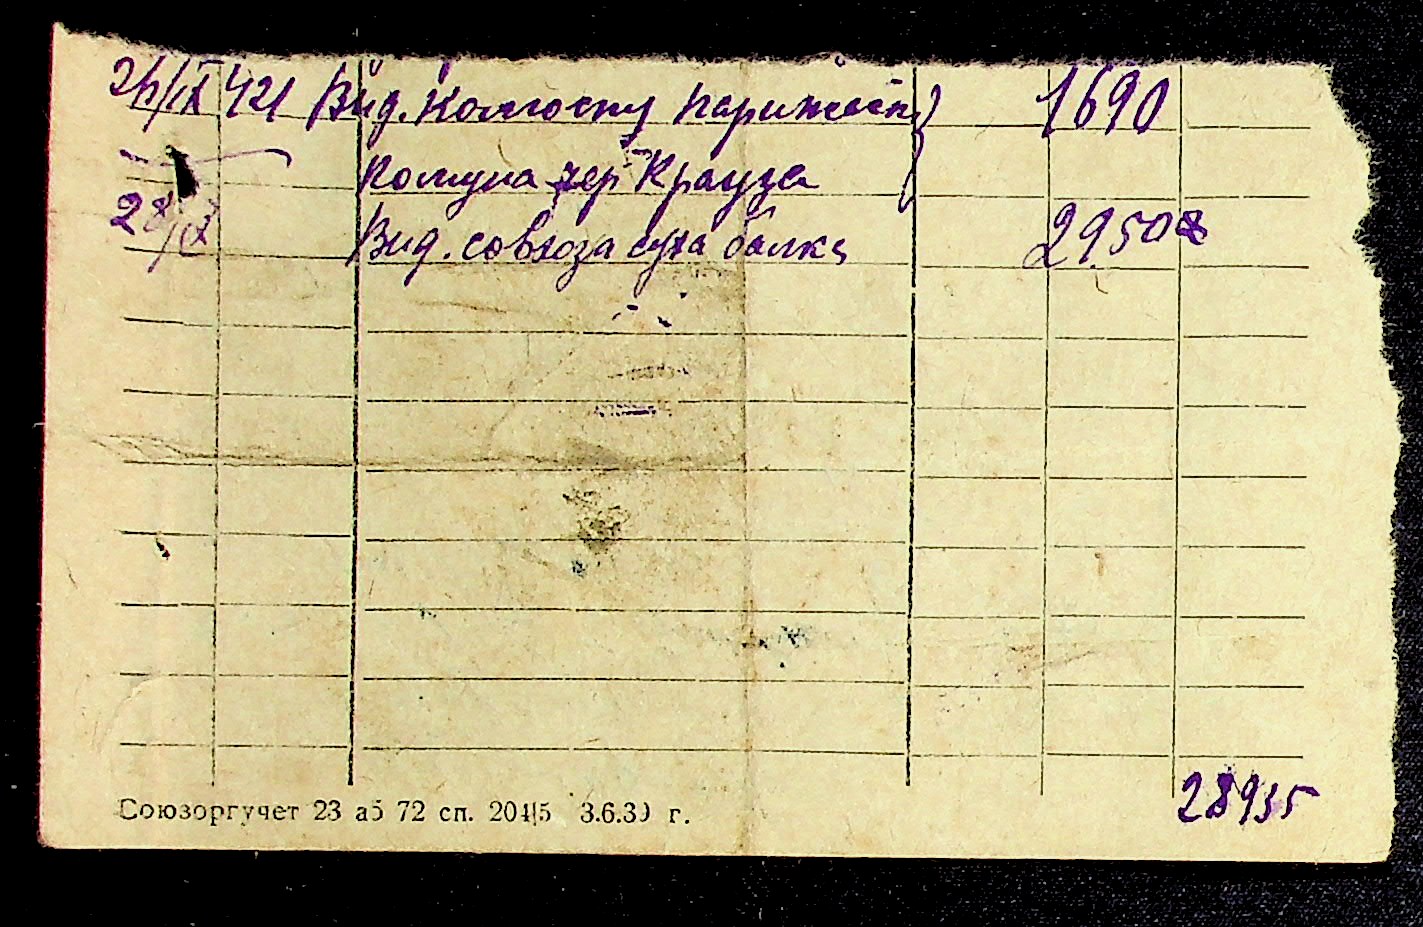 26/IX 421 Від. Колгоспу Парижськ 1690
Комуна чер Крауза
28/IX Від. совхоза суха балка 2950
Союзоргучет 23 аб 72 сп. 2045 3.6.39 г.
28935